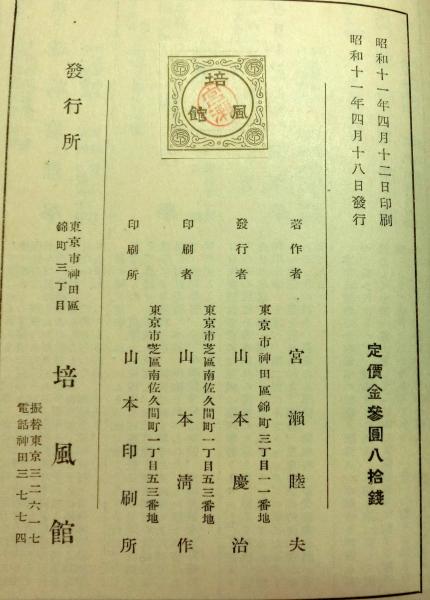 昭和十一年四月十二日印刷
昭和十一年四月十八日發行
定價金參圓八拾錢
培風館
著作者 宮瀨睦夫
東京市神田區錦町三丁目一一番地
發行者 山本慶治
東京市芝區南佐久間町一丁目五三番地
印刷者 山本淸作
東京市芝區南佐久間町一丁目五三番地
印刷所 山本印刷所
發行所
東京市神田區
錦町三丁目
培風館
振替東京三二六一七
電話神田三七七四